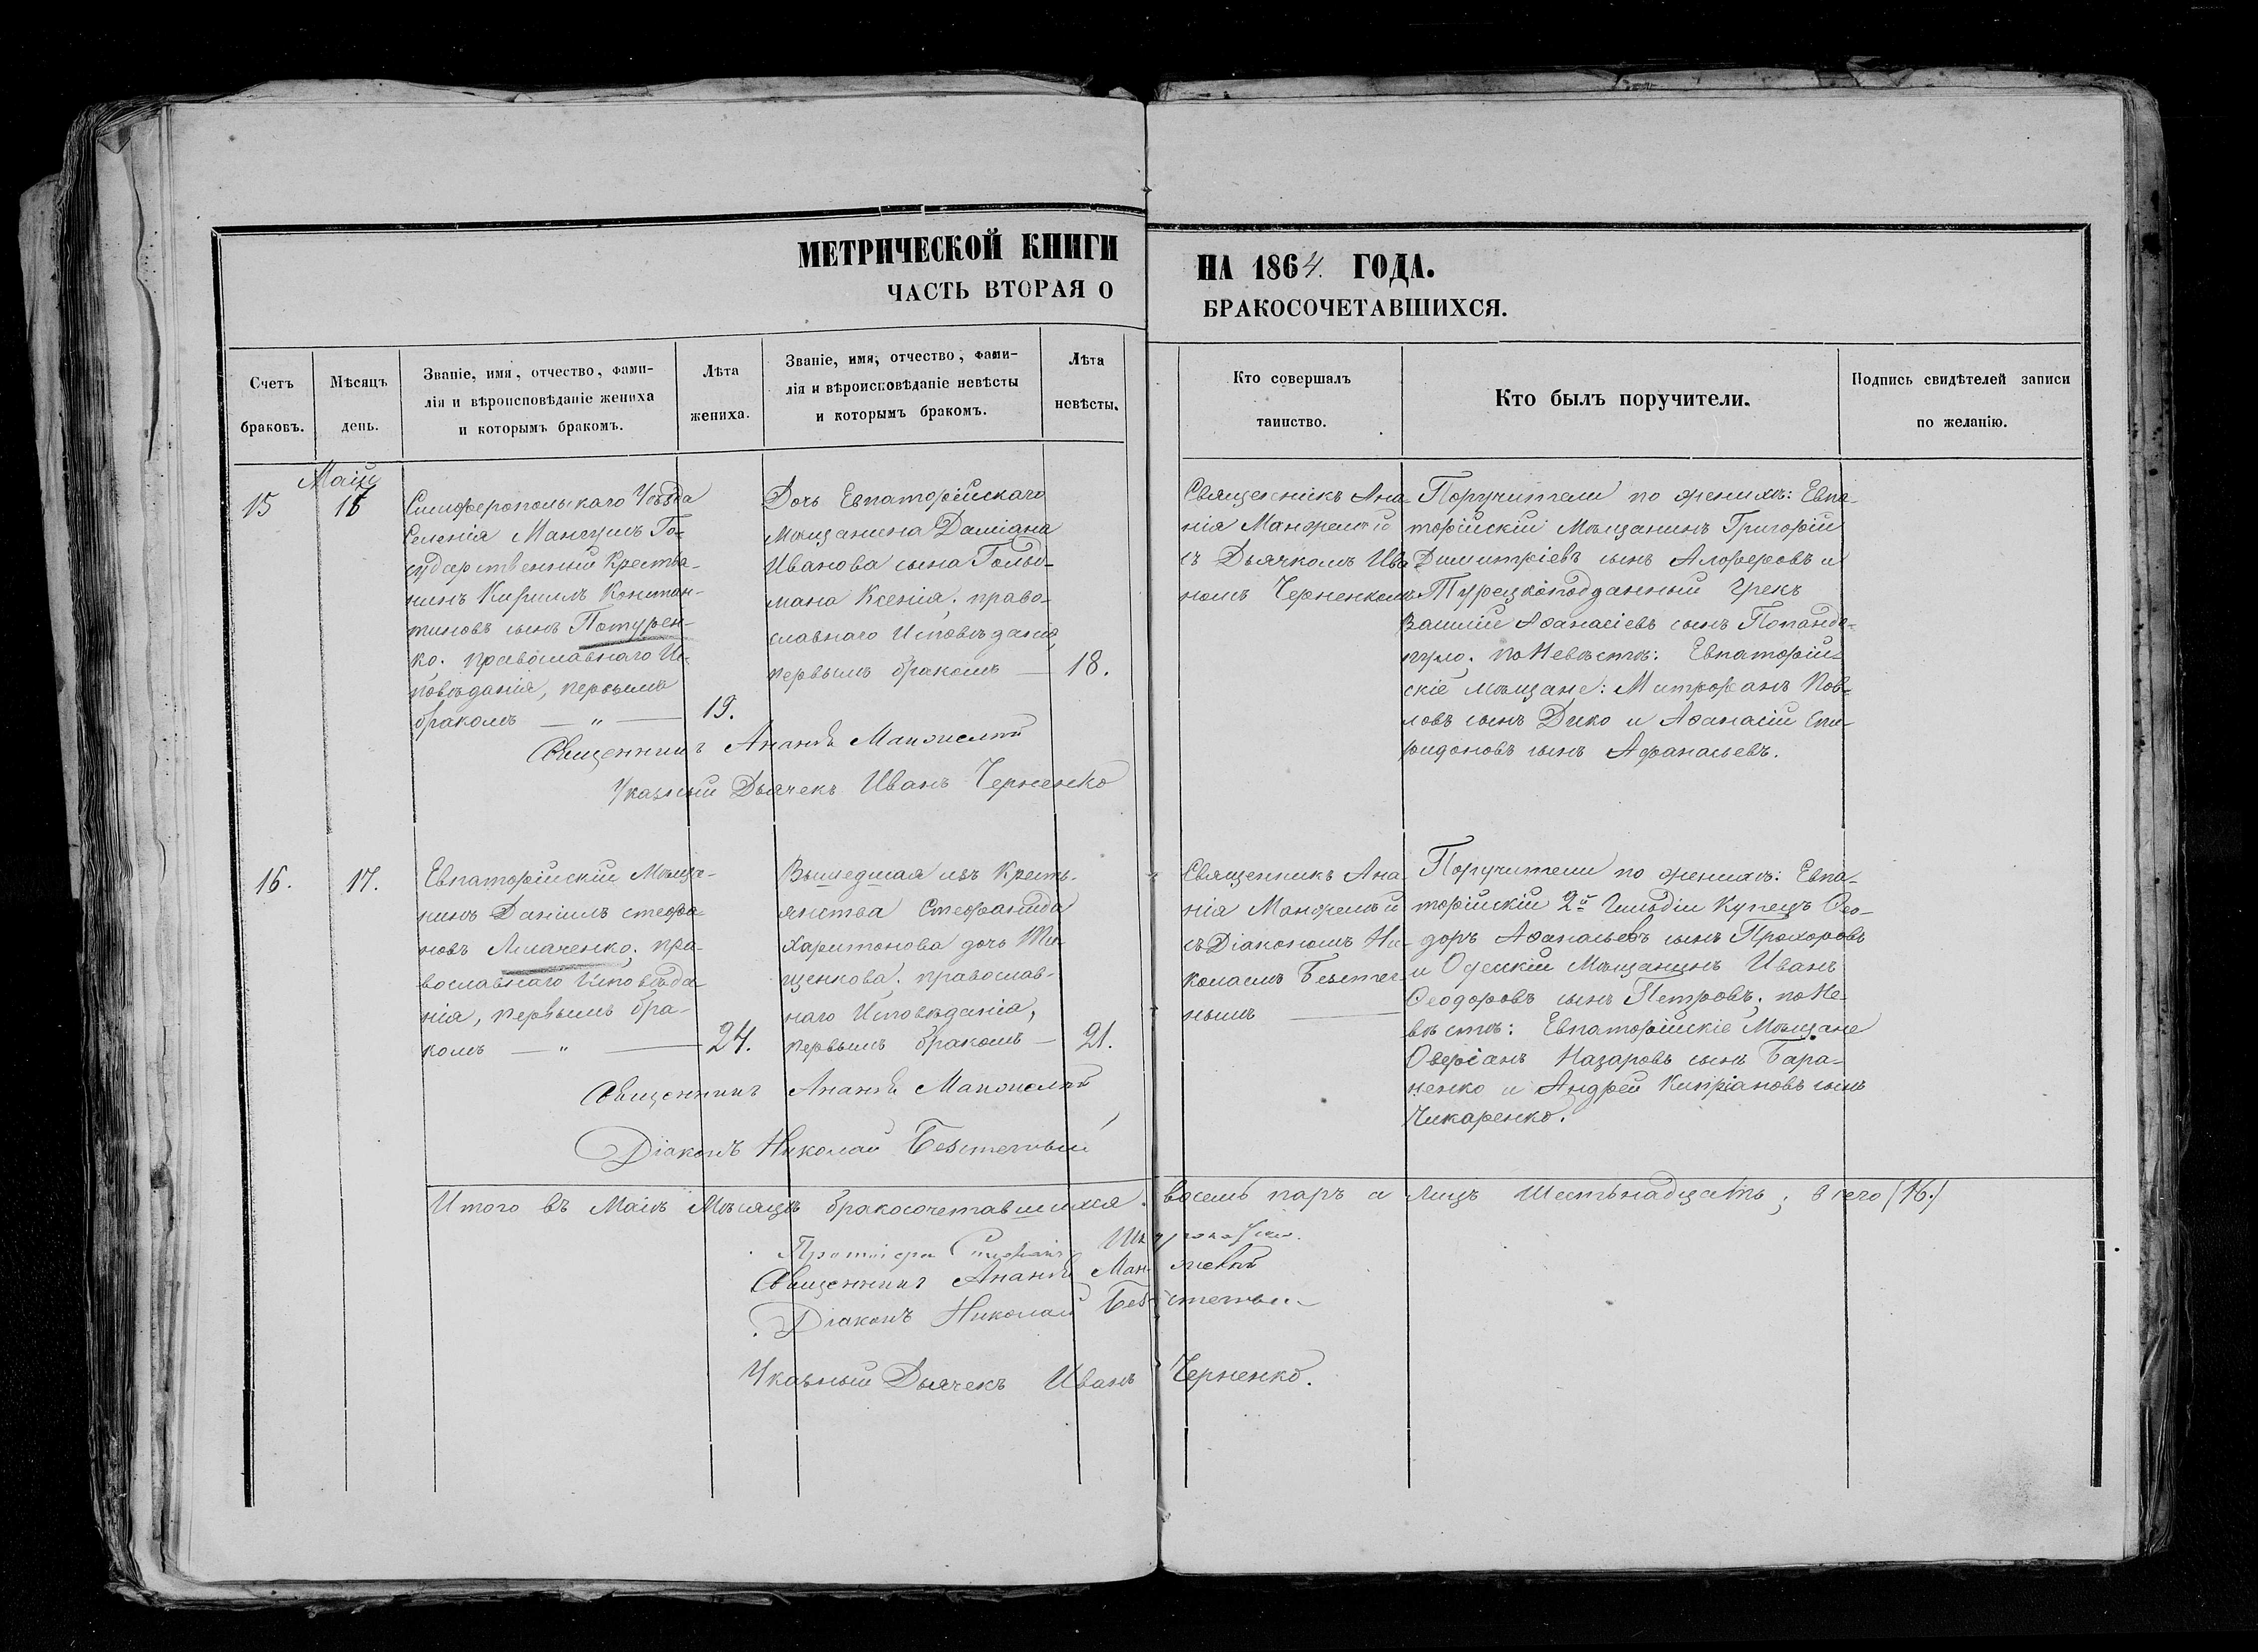 МЕТРИЧЕСКОЙ КНИГИ
ЧАСТЬ ВТОРАЯ О
НА 1864. ГОДА.
БРАКОСОЧЕТАВШИХСЯ.
Счетъ
браковъ.
Мѣсяцъ
день.
Званіе, имя, отчество, фами-
лія и вѣроисповѣданіе жениха
и которымъ бракомъ.
Лѣта
жениха.
Званіе, имя, отчество, фами-
лія и вѣроисповѣданіе невѣсты
и которымъ бракомъ.
Лѣта
невѣсты.
Кто совершалъ
таинство.
Кто былъ поручители.
Подпись свидѣтелей записи
по желанію.
15
Маій
Симферопольскаго Уѣзда
Селенія Мангушъ Го-
сударственный Крестья-
нинъ Кириллъ Констан-
тиновъ сынъ Потурен-
ко. православнаго Ис-
повѣданія, первымъ
бракомъ — „ — 19.
Дочь Евпаторійскаго
Мѣщанина Даміана
Иванова сына Гольд-
мана Ксенія. право-
славнаго Исповѣданія,
первымъ бракомъ — 18.
Священникъ Ана-
нія
съ Дьячкомъ Ива-
номъ Черненкомъ
Поручители по женихѣ: Евпа-
торійскій Мѣщанинъ Григорій
Димитріевъ сынъ Алферовъ и
Турецкоподданный Грекъ
Василій Аѳанасіевъ сынъ Попандо-
пуло. по Невѣстѣ: Евпаторій-
скіе мѣщане: Митрофанъ Пав-
ловъ сынъ Дико и Аѳанасій Спи-
ридоновъ сынъ Афанасьевъ.
Священникъ Ананія
Указный Дьячекъ Иванъ Черненко
16.
17.
Евпаторійскій Мѣща-
нинъ Даніилъ Стефа-
новъ Лисаченко. пра-
вославнаго Исповѣда-
нія, первымъ бра-
комъ — „ — 24.
Вышедшая изъ Кресть-
янства Стефанида
Харитонова дочь Ти-
щенкова. православ-
наго Исповѣданія,
первымъ бракомъ — 21.
Священникъ Ана-
нія
съ Діакономъ Ни-
колаемъ
Поручители по женихѣ: Евпа-
торійскій 2й Гильдіи Купецъ Ѳео-
доръ Аѳанасьевъ сынъ Прохоровъ
и Одесскій Мѣщанинъ Иванъ
Ѳеодоровъ сынъ Петровъ. по Не-
вѣстѣ: Евпаторійскіе Мѣщане
Оверіанъ Назаровъ сынъ Бара-
ненко и Андрей Кипріановъ сынъ
Чикаренко.
Священникъ Ананія
Діаконъ Николай
Итого въ Маіѣ Мѣсяцѣ бракосочетавшихся восемь паръ а лицъ шестьнадцать; всего (16.)
Протоіерей
Священникъ Ананія
Діаконъ Николай
Указный Дьячекъ Иванъ Черненко.